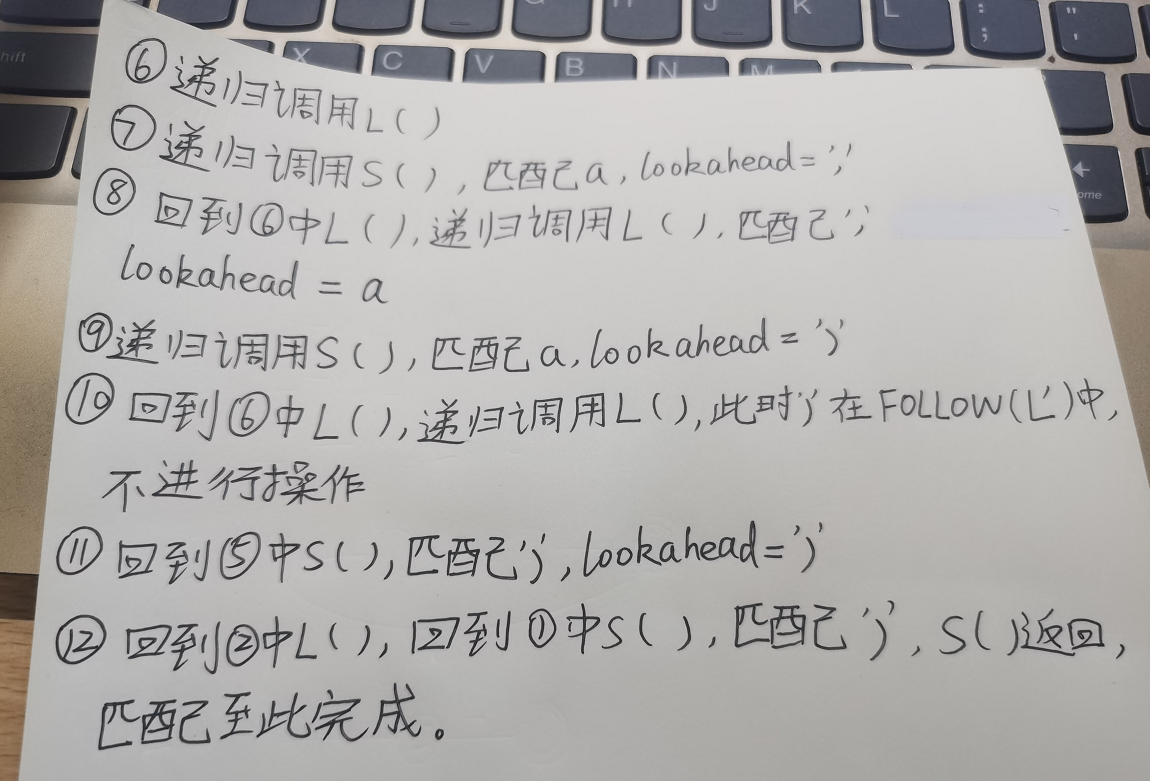 X C V B N M J K L : ; " '
hift
ome
⑥递归调用L()
⑦递归调用S(),匹配a,lookahead=','
⑧回到⑥中L(),递归调用L(),匹配','
lookahead = a
⑨递归调用S(),匹配a,lookahead=')'
⑩回到⑥中L(),递归调用L(),此时')'在FOLLOW(L')中,
不进行操作
⑪回到⑤中S(),匹配')',lookahead=')'
⑫回到②中L(),回到①中S(),匹配')',S()返回,
匹配至此完成。